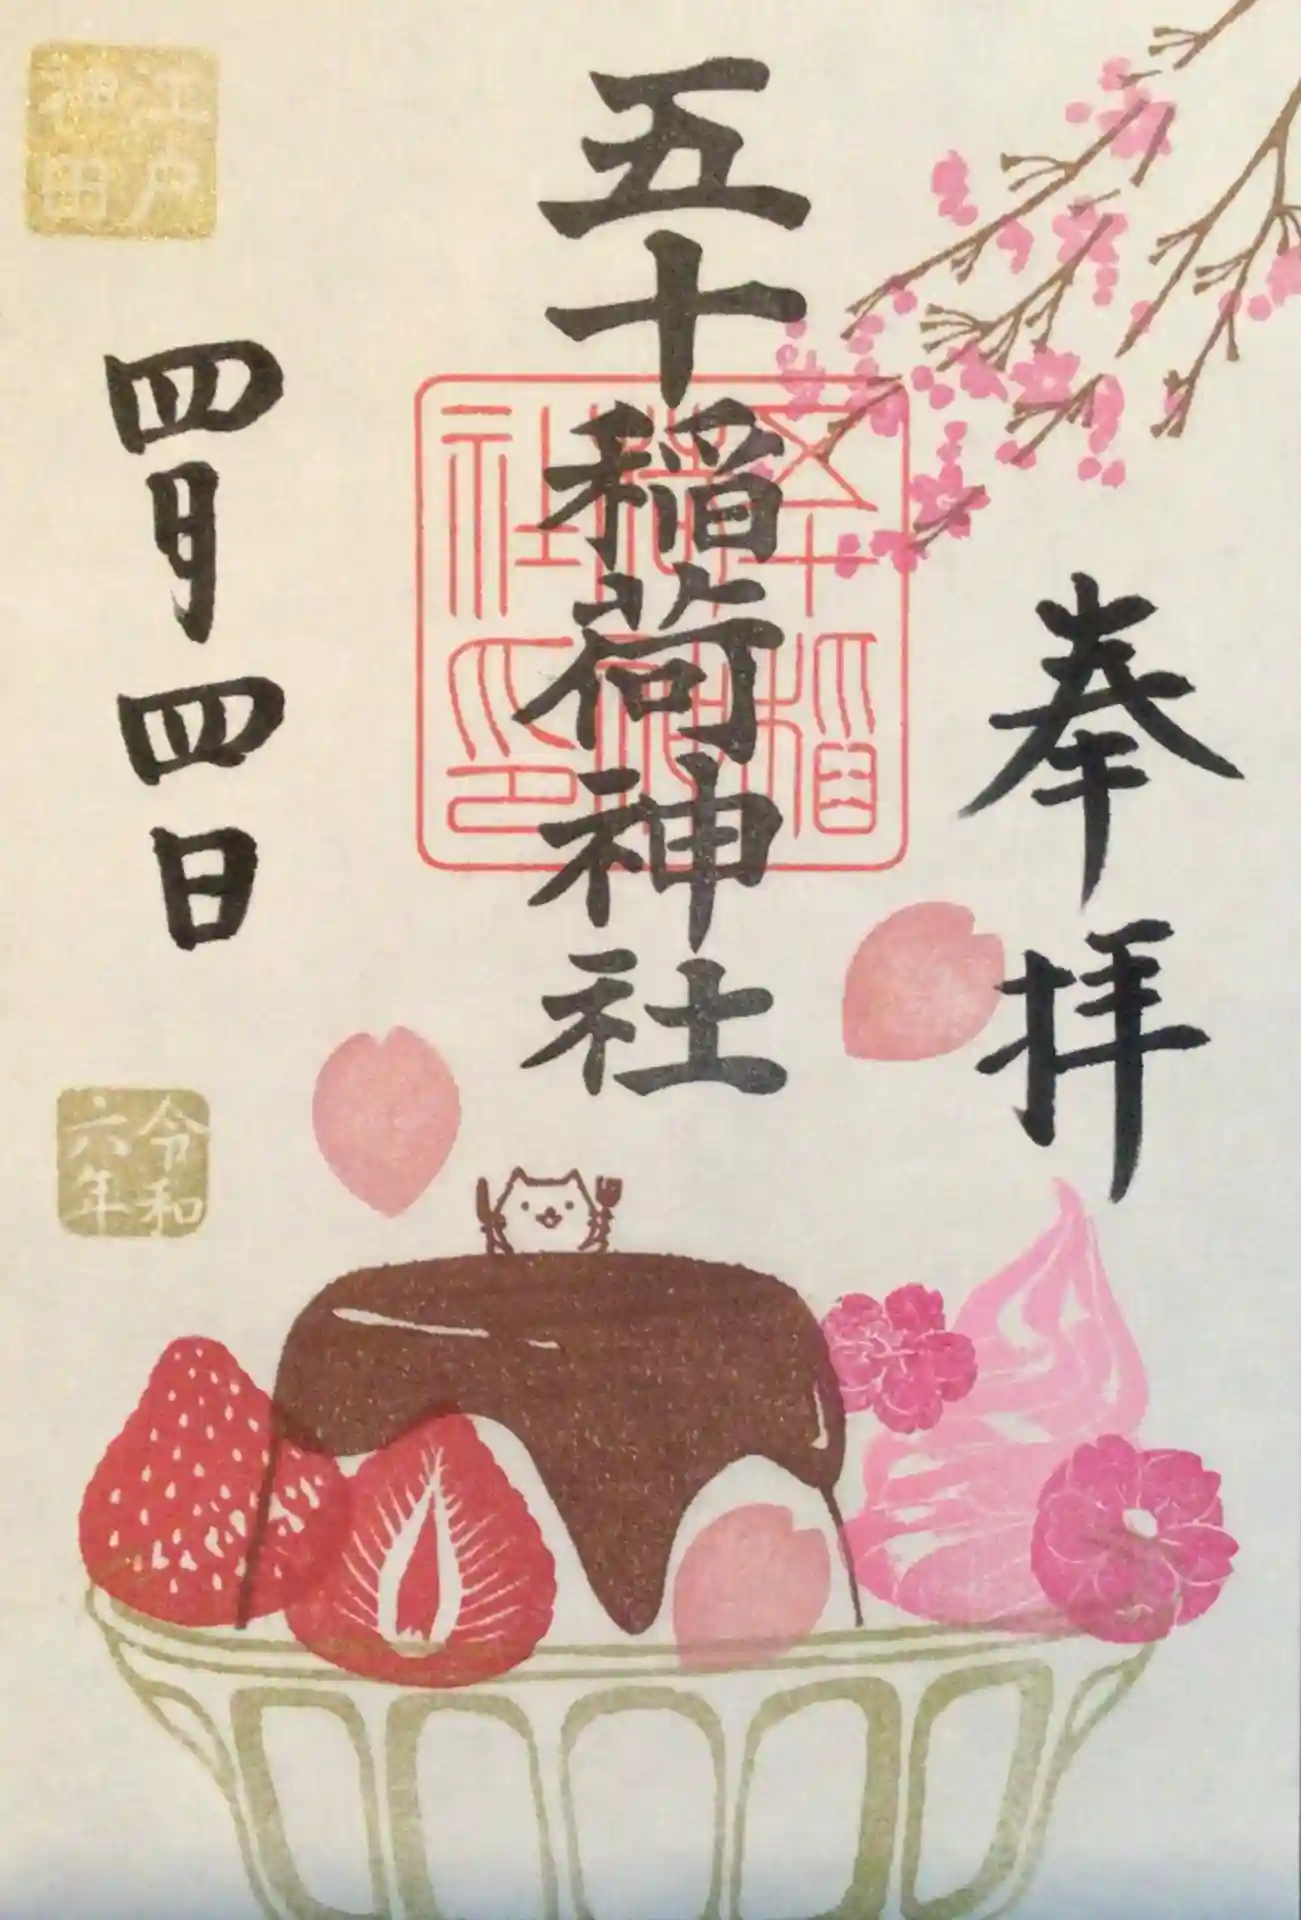 奉拝
五十稲荷神社
五十稲荷神社印
四月四日
江戸神田
令和六年